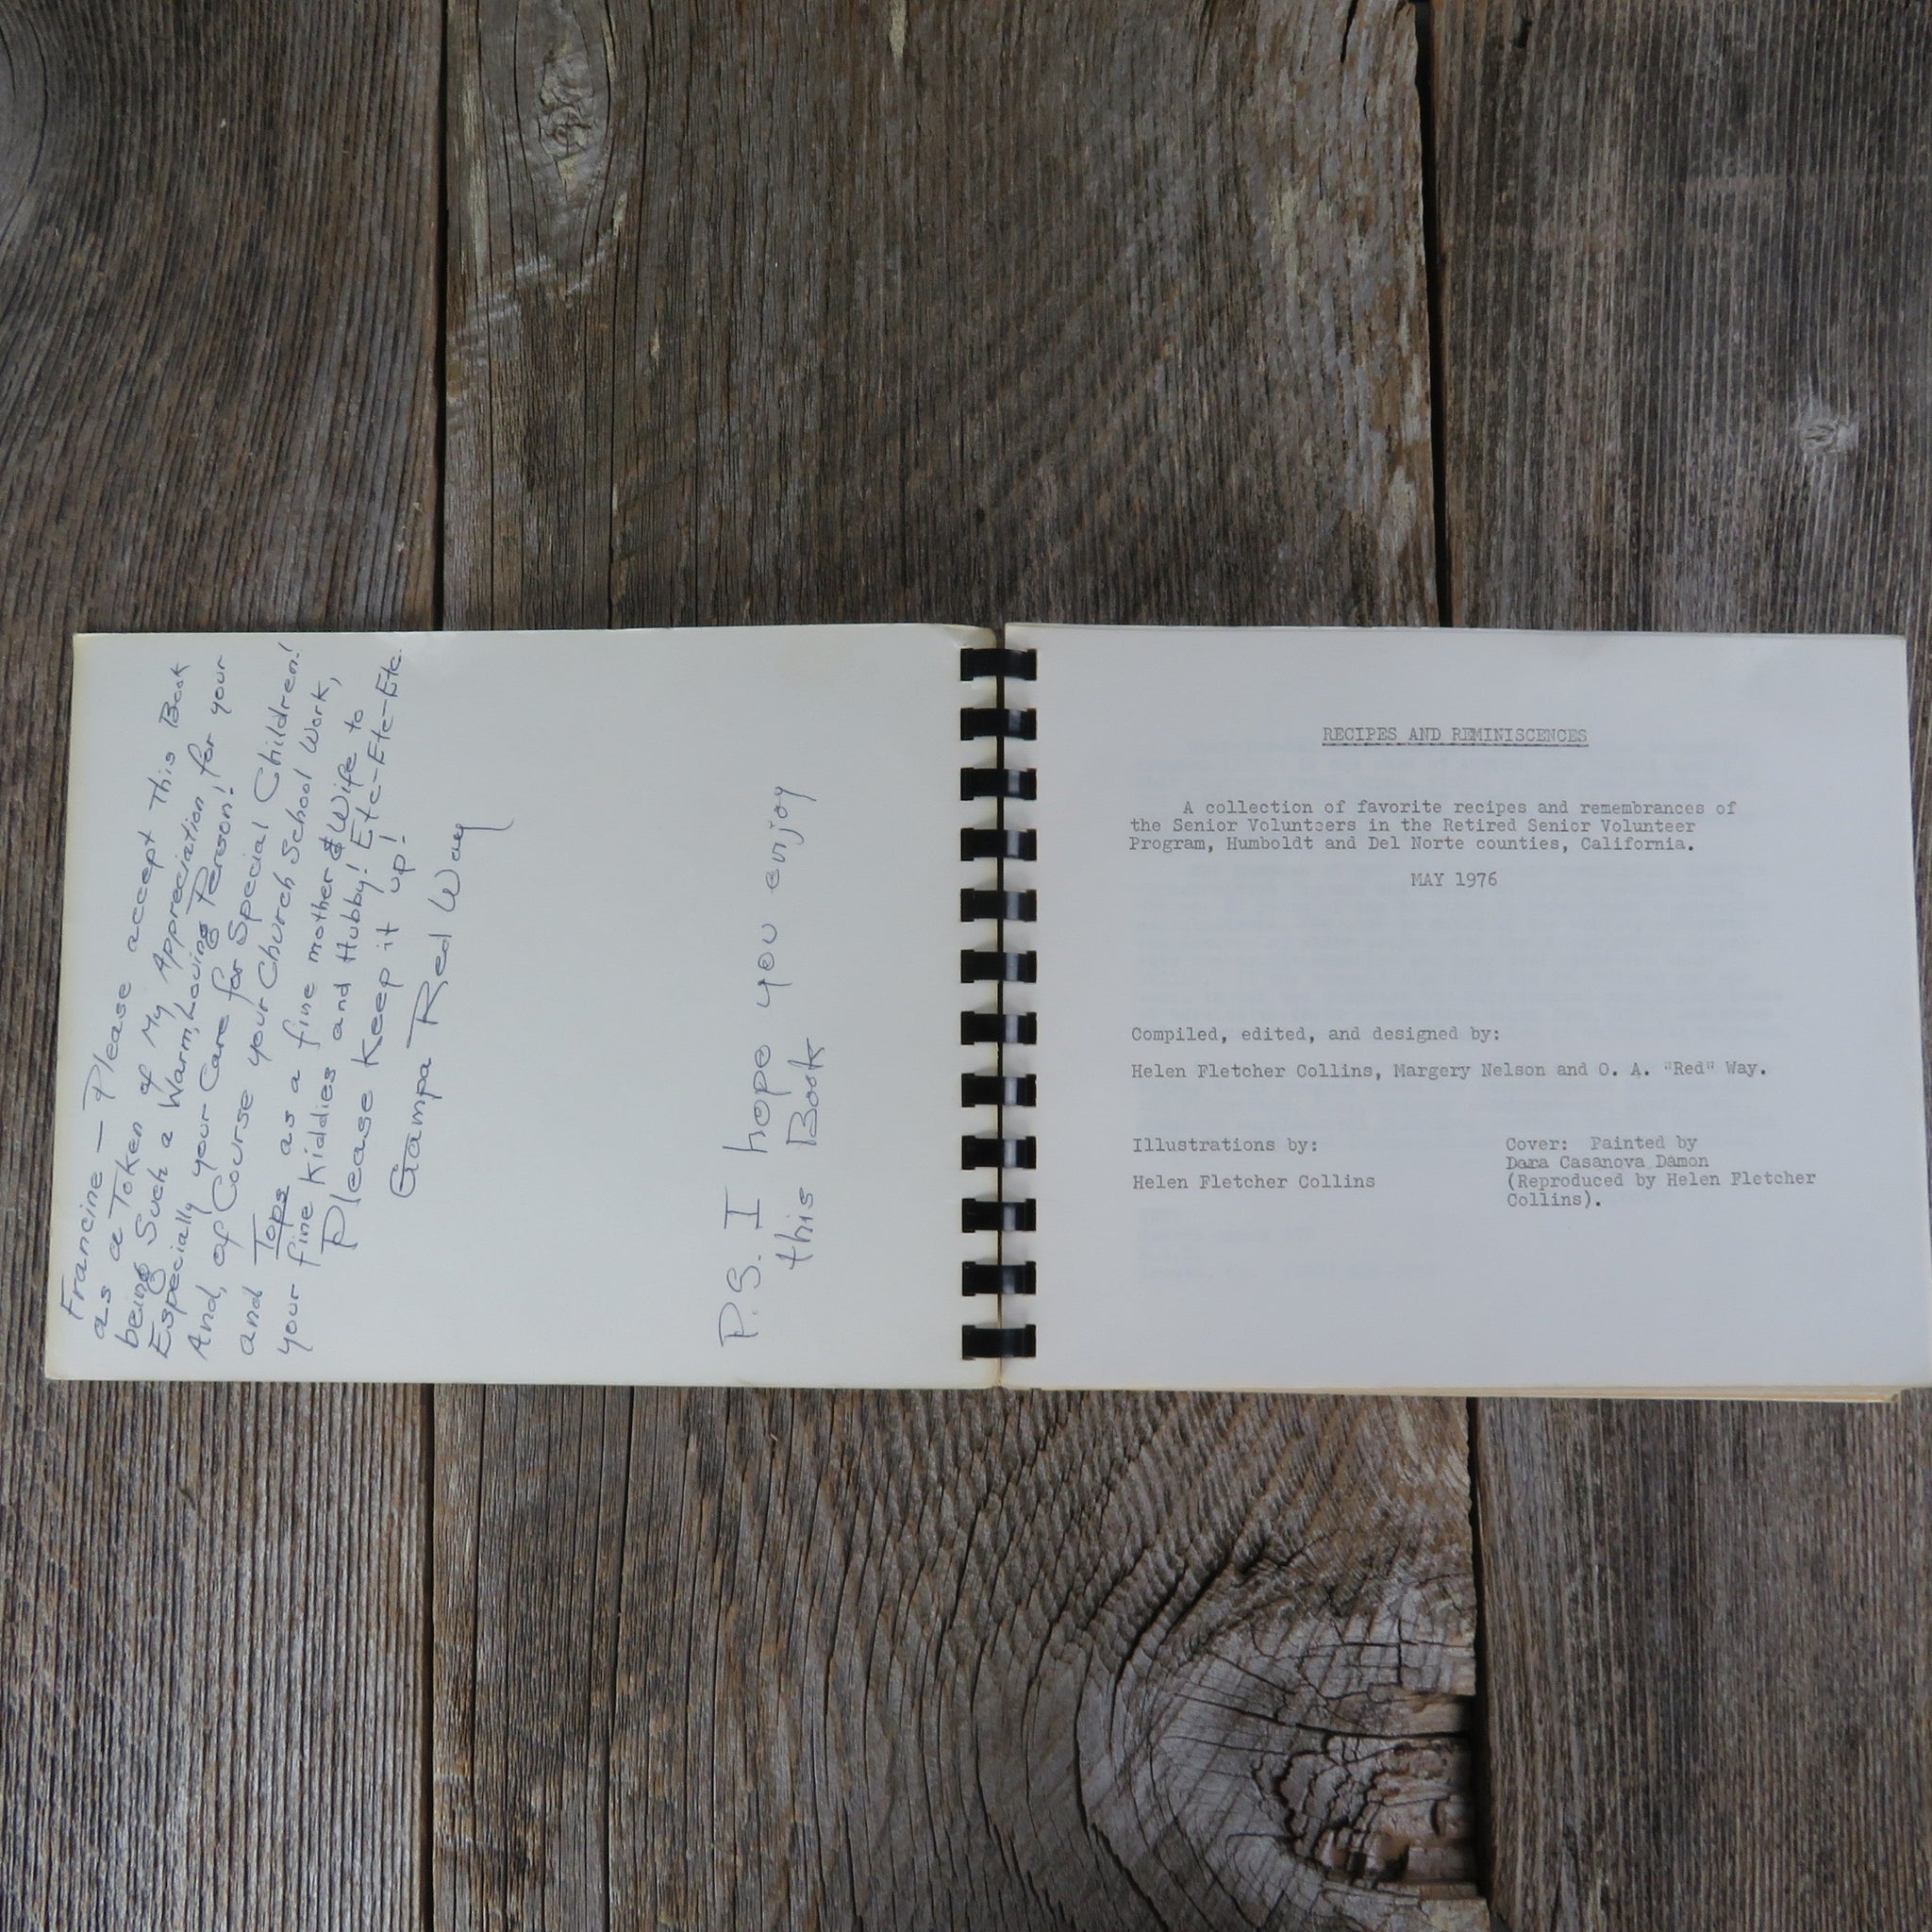 Francine — Please accept This Book
as a Token of My Appreciation for your
being Such a Warm, Loving Person!
Especially your Care for Special Children!
And, of Course your Church School Work,
and Tops as a fine mother & Wife to
your fine Kiddies and Hubby! Etc-Etc-Etc.
Please Keep it up!
Gampa Red Way
P.S. I hope you enjoy
this Book
RECIPES AND REMINISCENCES
A collection of favorite recipes and remembrances of
the Senior Volunteers in the Retired Senior Volunteer
Program, Humboldt and Del Norte counties, California.
MAY 1976
Compiled, edited, and designed by:
Helen Fletcher Collins, Margery Nelson and O. A. "Red" Way.
Illustrations by:
Helen Fletcher Collins
Cover: Painted by
Dara Casanova Damon
(Reproduced by Helen Fletcher
Collins).